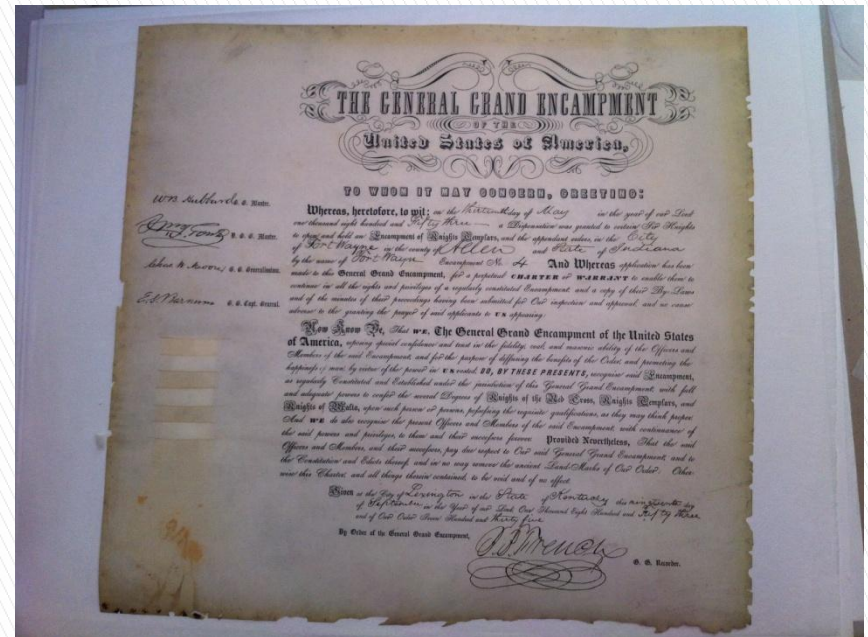 THE GENERAL GRAND ENCAMPMENT
OF THE
United States of America,
TO WHOM IT MAY CONCERN, GREETING:
W. B. Hubbard G. G. Master.
D. G. G. Master.
G. G. Generalissimo.
G. G. Capt. General.
Whereas, heretofore, to wit: on the thirteenth day of May in the year of our Lord
one thousand eight hundred and Fifty three a Dispensation was granted to certain Sir Knights
to open and hold an Encampment of Knights Templars, and the appendant orders, in the City
of Fort Wayne in the county of Allen and State of Indiana
by the name of Fort Wayne Encampment No. 4 And Whereas application has been
made to this General Grand Encampment, for a perpetual CHARTER or WARRANT to enable them to
continue in all the rights and privileges of a regularly constituted Encampment, and a copy of their By-Laws
and of the minutes of their proceedings having been submitted for Our inspection and approval, and no cause
adverse to the granting the prayer of said applicants to US appearing:
Now Know Ye, That WE, The General Grand Encampment of the United States
of America, reposing special confidence and trust in the fidelity, zeal, and masonic ability of the Officers and
Members of the said Encampment, and for the purpose of diffusing the benefits of the Order, and promoting the
happiness of man, by virtue of the power in US vested, DO, BY THESE PRESENTS, recognize said Encampment,
as regularly Constituted and Established under the jurisdiction of this General Grand Encampment, with full
and adequate powers to confer the several Degrees of Knights of the Red Cross, Knights Templars, and
Knights of Malta, upon such person or persons, possessing the requisite qualifications, as they may think proper.
And WE do also recognize the present Officers and Members of the said Encampment, with continuance of
the said powers and privileges, to them and their successors forever. Provided Nevertheless, That the said
Officers and Members, and their successors, pay due respect to Our said General Grand Encampment, and to
the Constitution and Edicts thereof, and in no way remove the ancient Land-Marks of Our Order. Other-
wise this Charter, and all things therein contained, to be void and of no effect.
Given at the City of Lexington in the State of Kentucky this nineteenth day
of September in the Year of our Lord One Thousand Eight Hundred and Fifty three
and of Our Order Seven Hundred and thirty five
By Order of the General Grand Encampment,
B. B. French
G. G. Recorder.